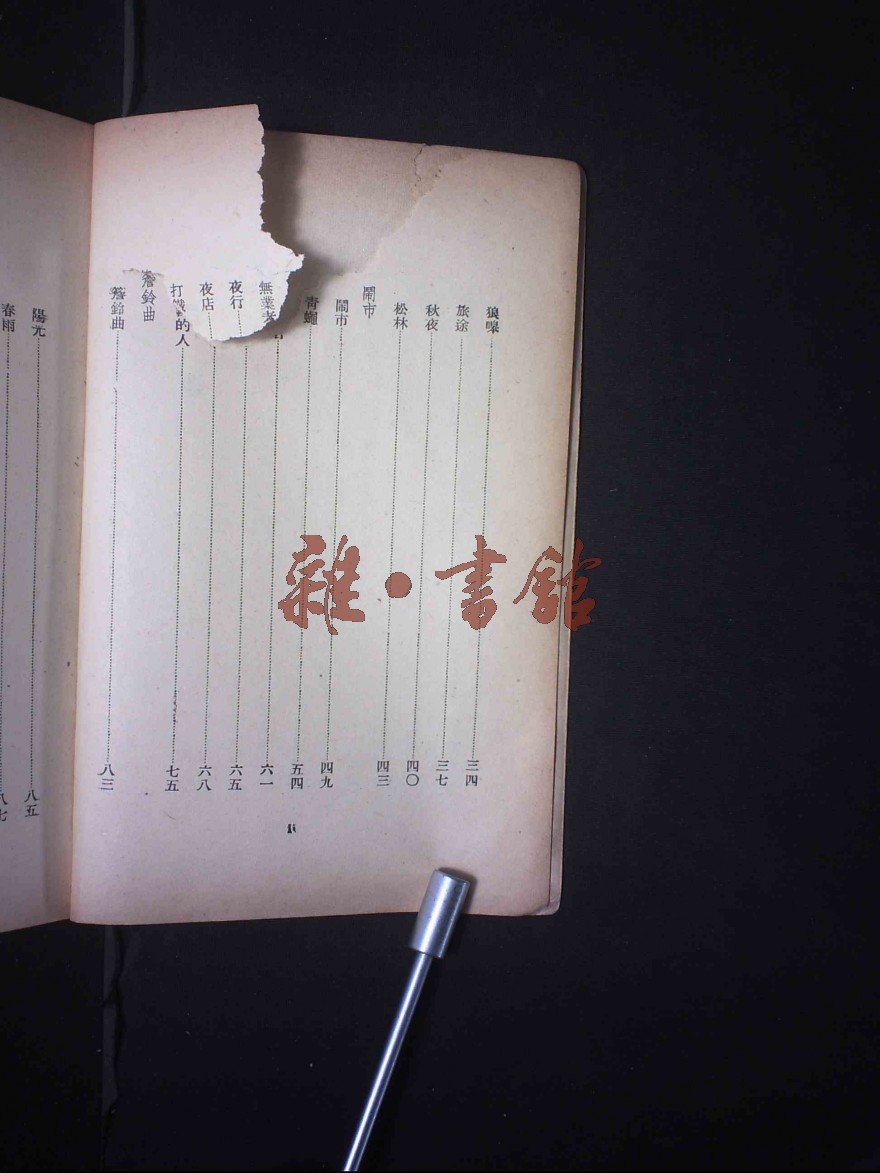 狼嗥……三四
旅途……三七
秋夜……四〇
松林……四三
鬧市
鬧市……四九
青蠅……五四
無業者……六一
夜行……六五
夜店……六八
打鐵的人……七五
簷鈴曲
簷鈴曲……八三
陽光……八五
春雨……八七
ii
雜·書館